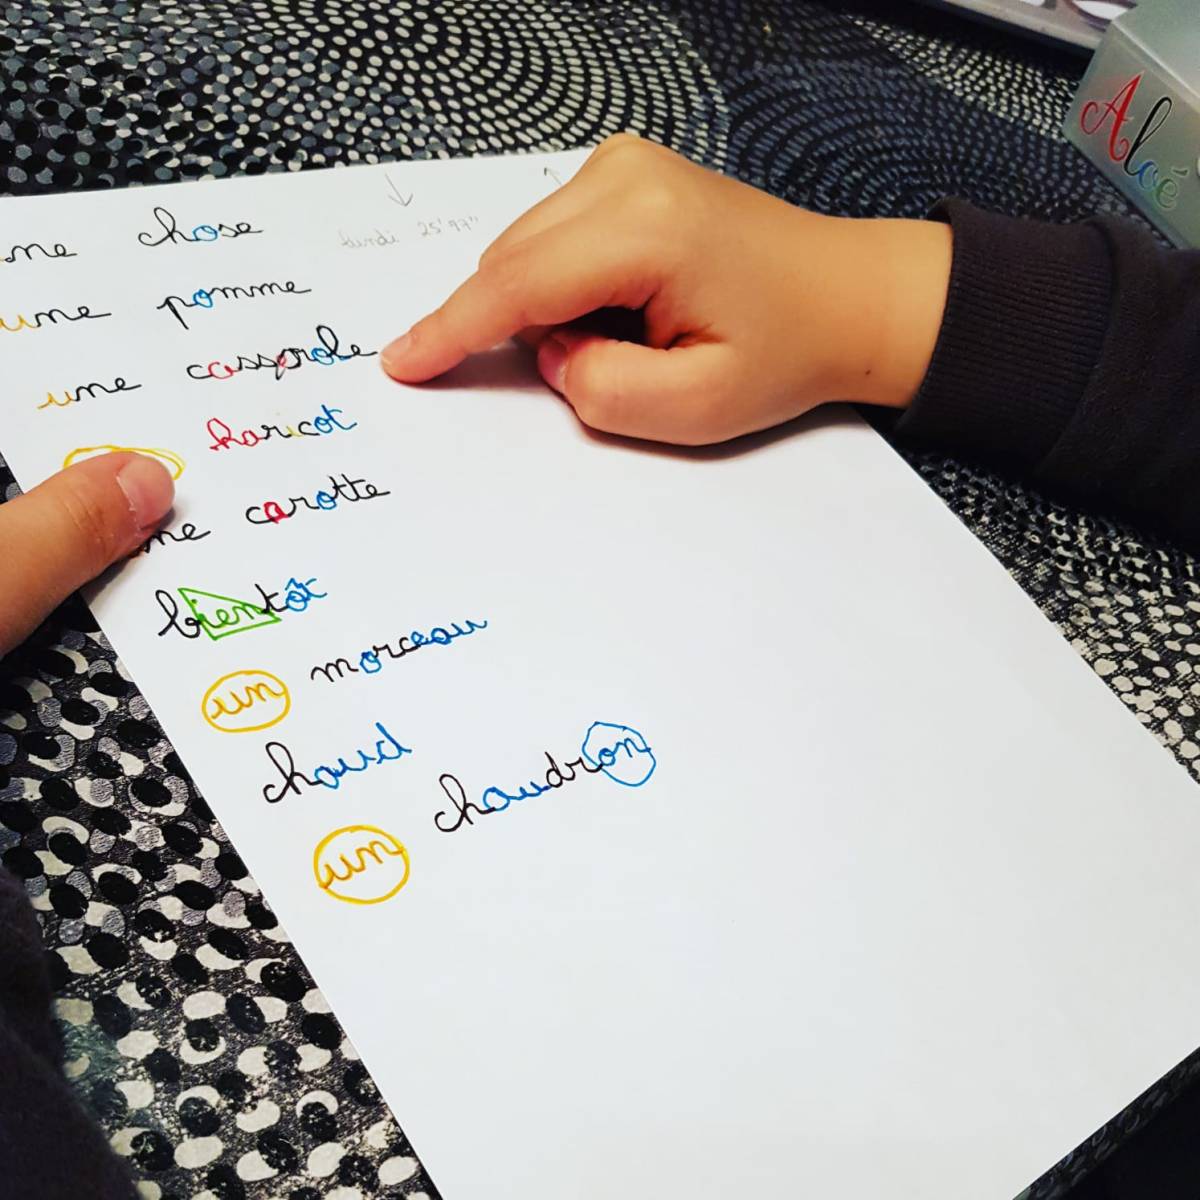 Aloé
une chose
lundi 25'97"
une pomme
une casserole
haricot
une carotte
bientôt
un morceau
chaud
un chaudron